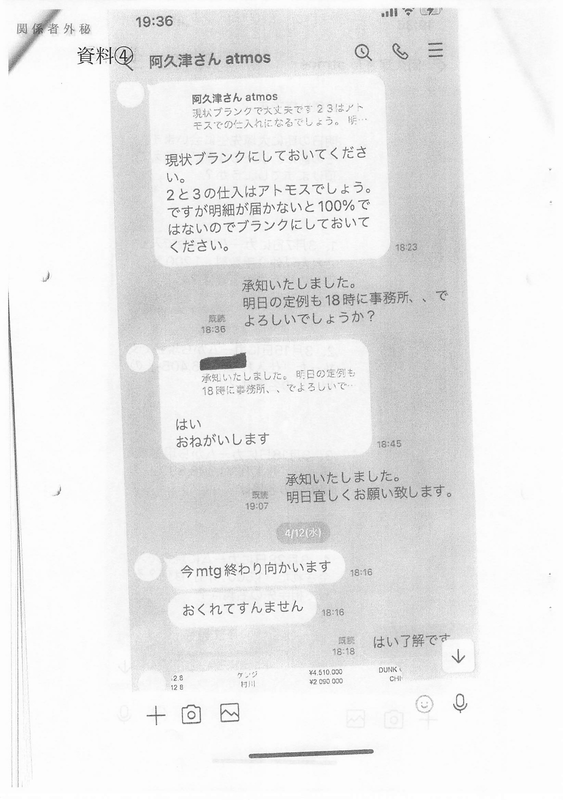 関係者外秘
資料④
19:36
阿久津さん atmos
阿久津さん atmos
現状ブランクで大丈夫です 2 3はアト
モスでの仕入れになるでしょう。 明…
現状ブランクにしておいてくださ
い。
2と3の仕入はアトモスでしょう。
ですが明細が届かないと100%で
はないのでブランクにしておいて
ください。
18:23
承知いたしました。
明日の定例も18時に事務所、、で
よろしいでしょうか？
既読
18:36
承知いたしました。 明日の定例も
18時に事務所、、でよろしいで…
はい
おねがいします
18:45
承知いたしました。
明日宜しくお願い致します。
既読
19:07
4/12(水)
今mtg終わり向かいます
18:16
おくれてすんません
18:16
はい了解です
既読
18:18
12 8 村川 ¥2 090 000
¥4,510,000 DUNK